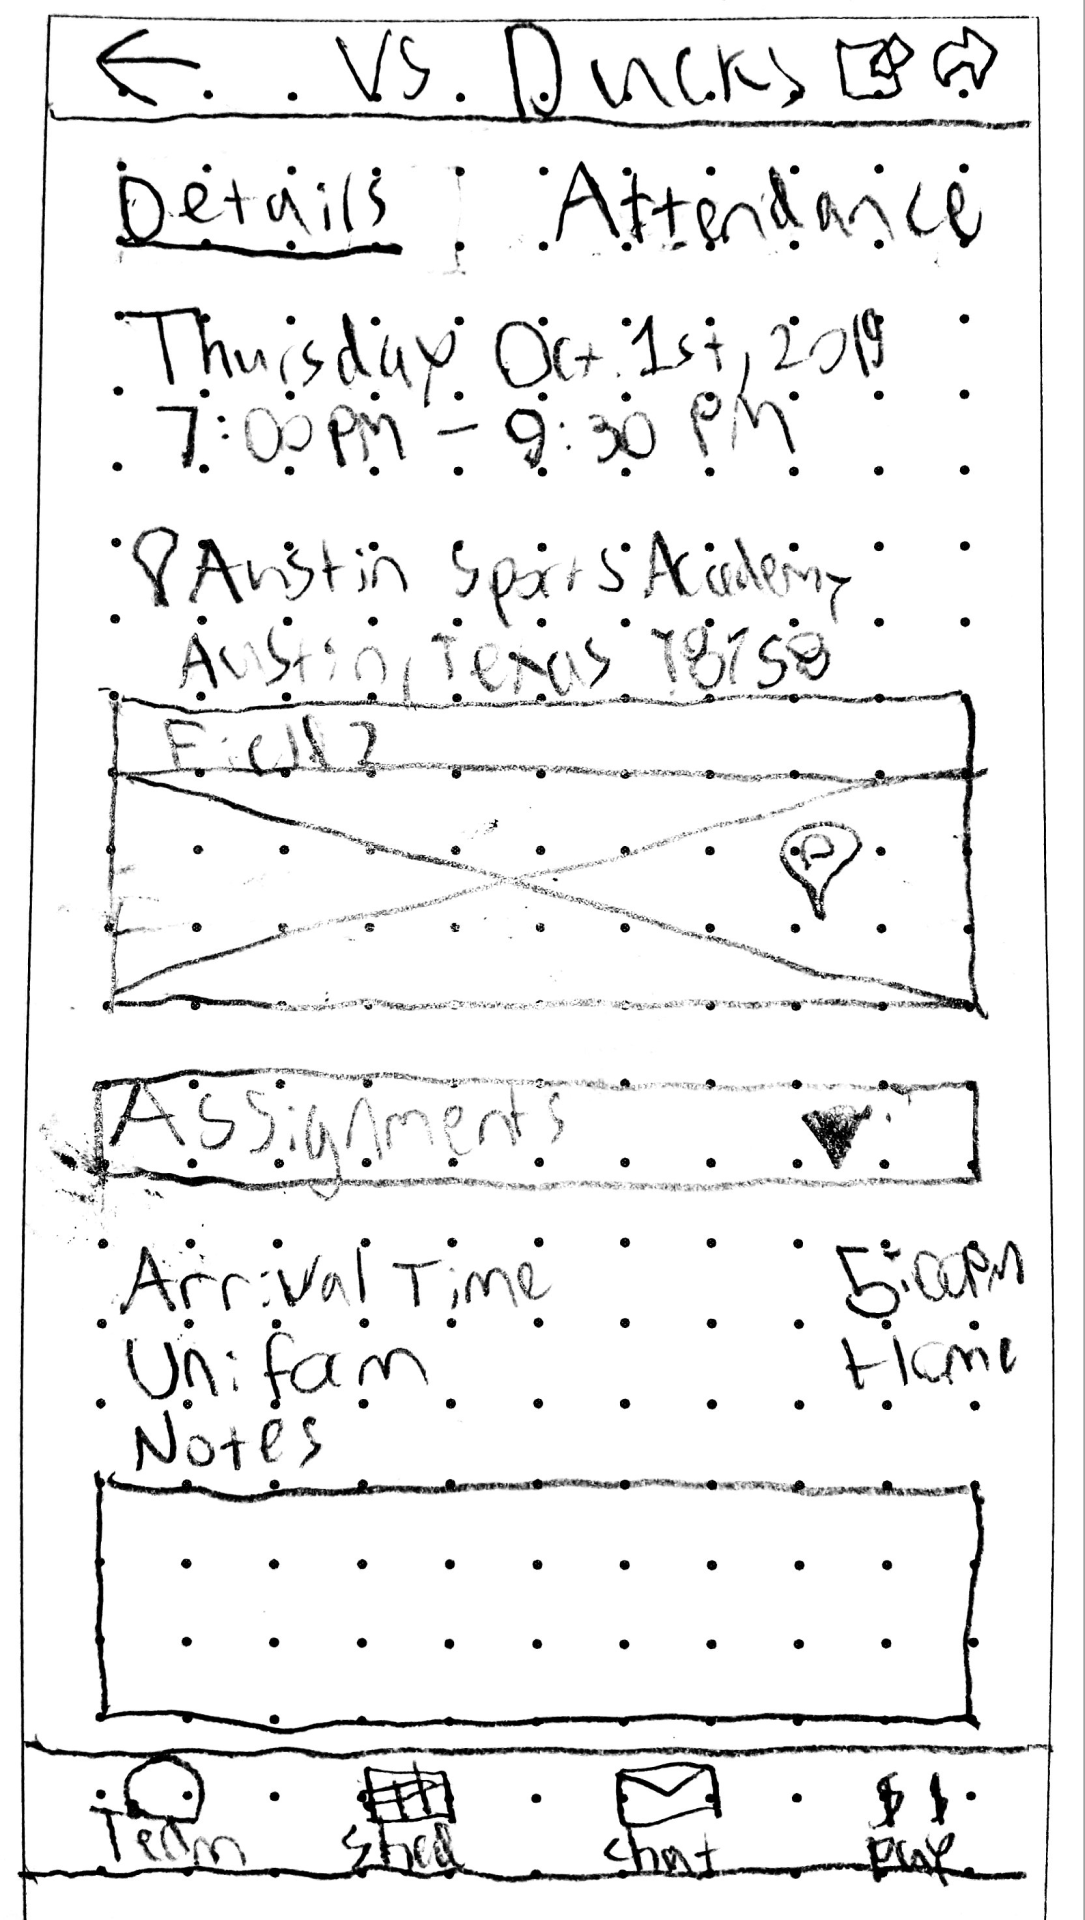 VS. Ducks
Details
Attendance
Thursday Oct. 1st, 2019
7:00PM - 9:30 PM
Austin Sports Academy
Austin, Texas 78758
Field 2
Assignments
Arrival Time 5:00PM
Uniform Home
Notes
Team Shed Chat Pay
$ $